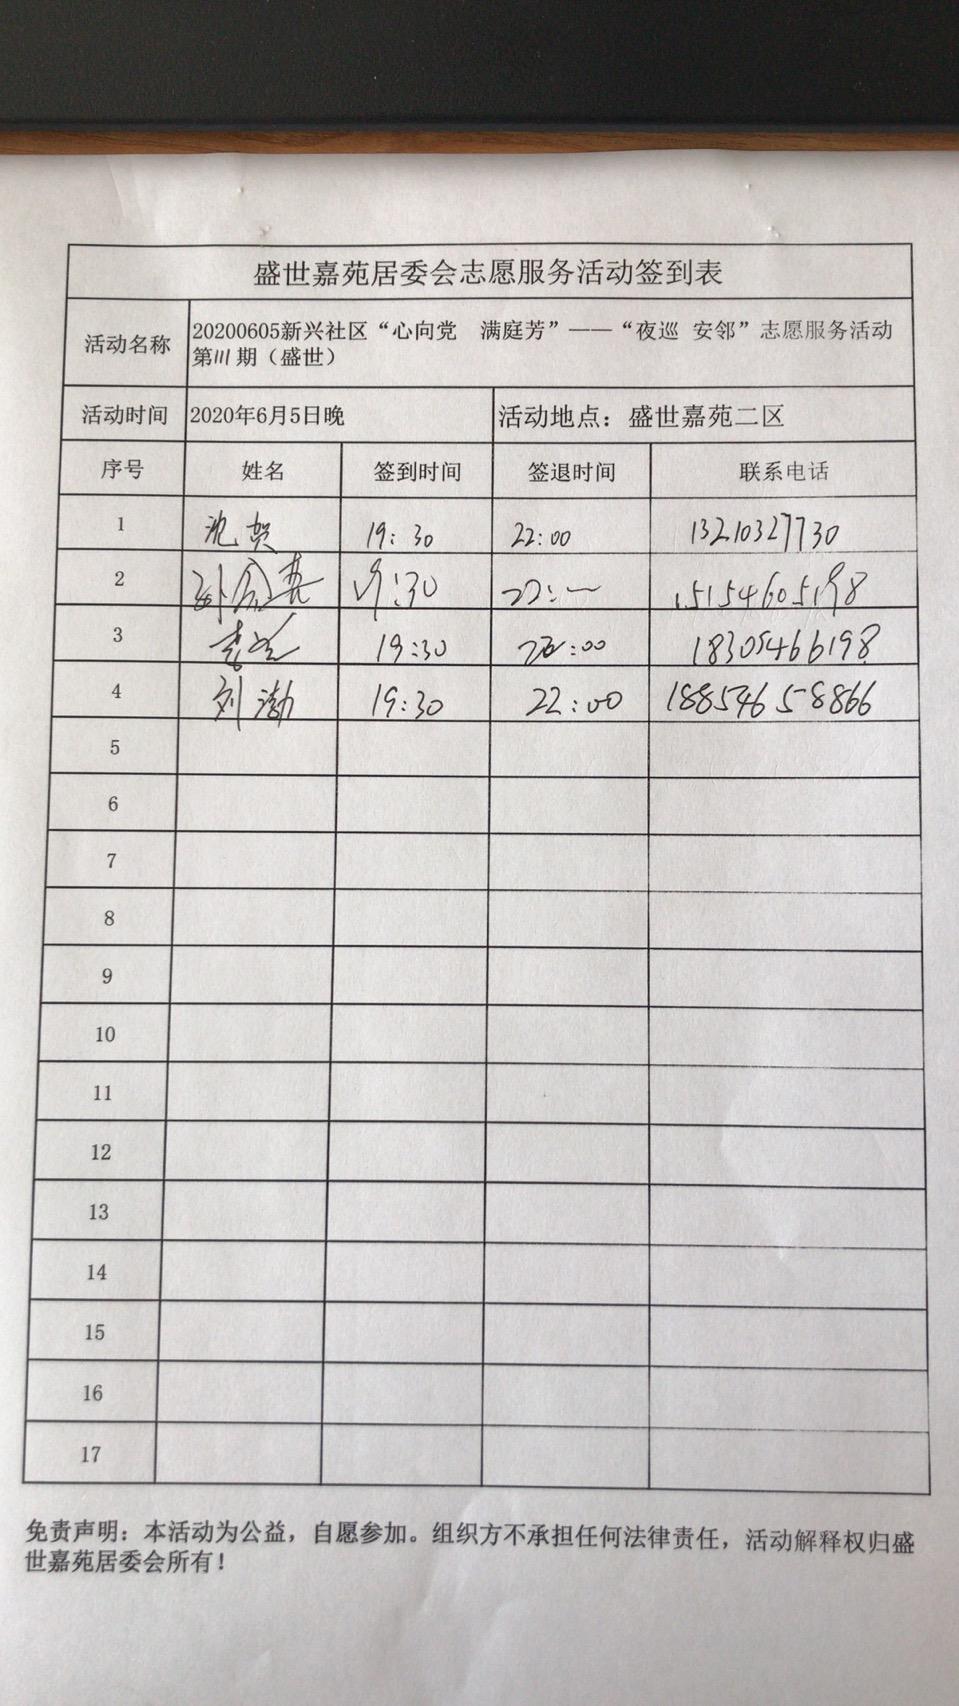 盛世嘉苑居委会志愿服务活动签到表
活动名称 20200605新兴社区“心向党 满庭芳”——“夜巡 安邻”志愿服务活动
第111期（盛世）
活动时间 2020年6月5日晚 活动地点：盛世嘉苑二区
序号 姓名 签到时间 签退时间 联系电话
1 19:30 22:00 13210327730
2 19:30 15154605198
3 19:30 18305466198
4 刘渤 19:30 22:00 18854658866
5
6
7
8
9
10
11
12
13
14
15
16
17
免责声明：本活动为公益，自愿参加。组织方不承担任何法律责任，活动解释权归盛
世嘉苑居委会所有！